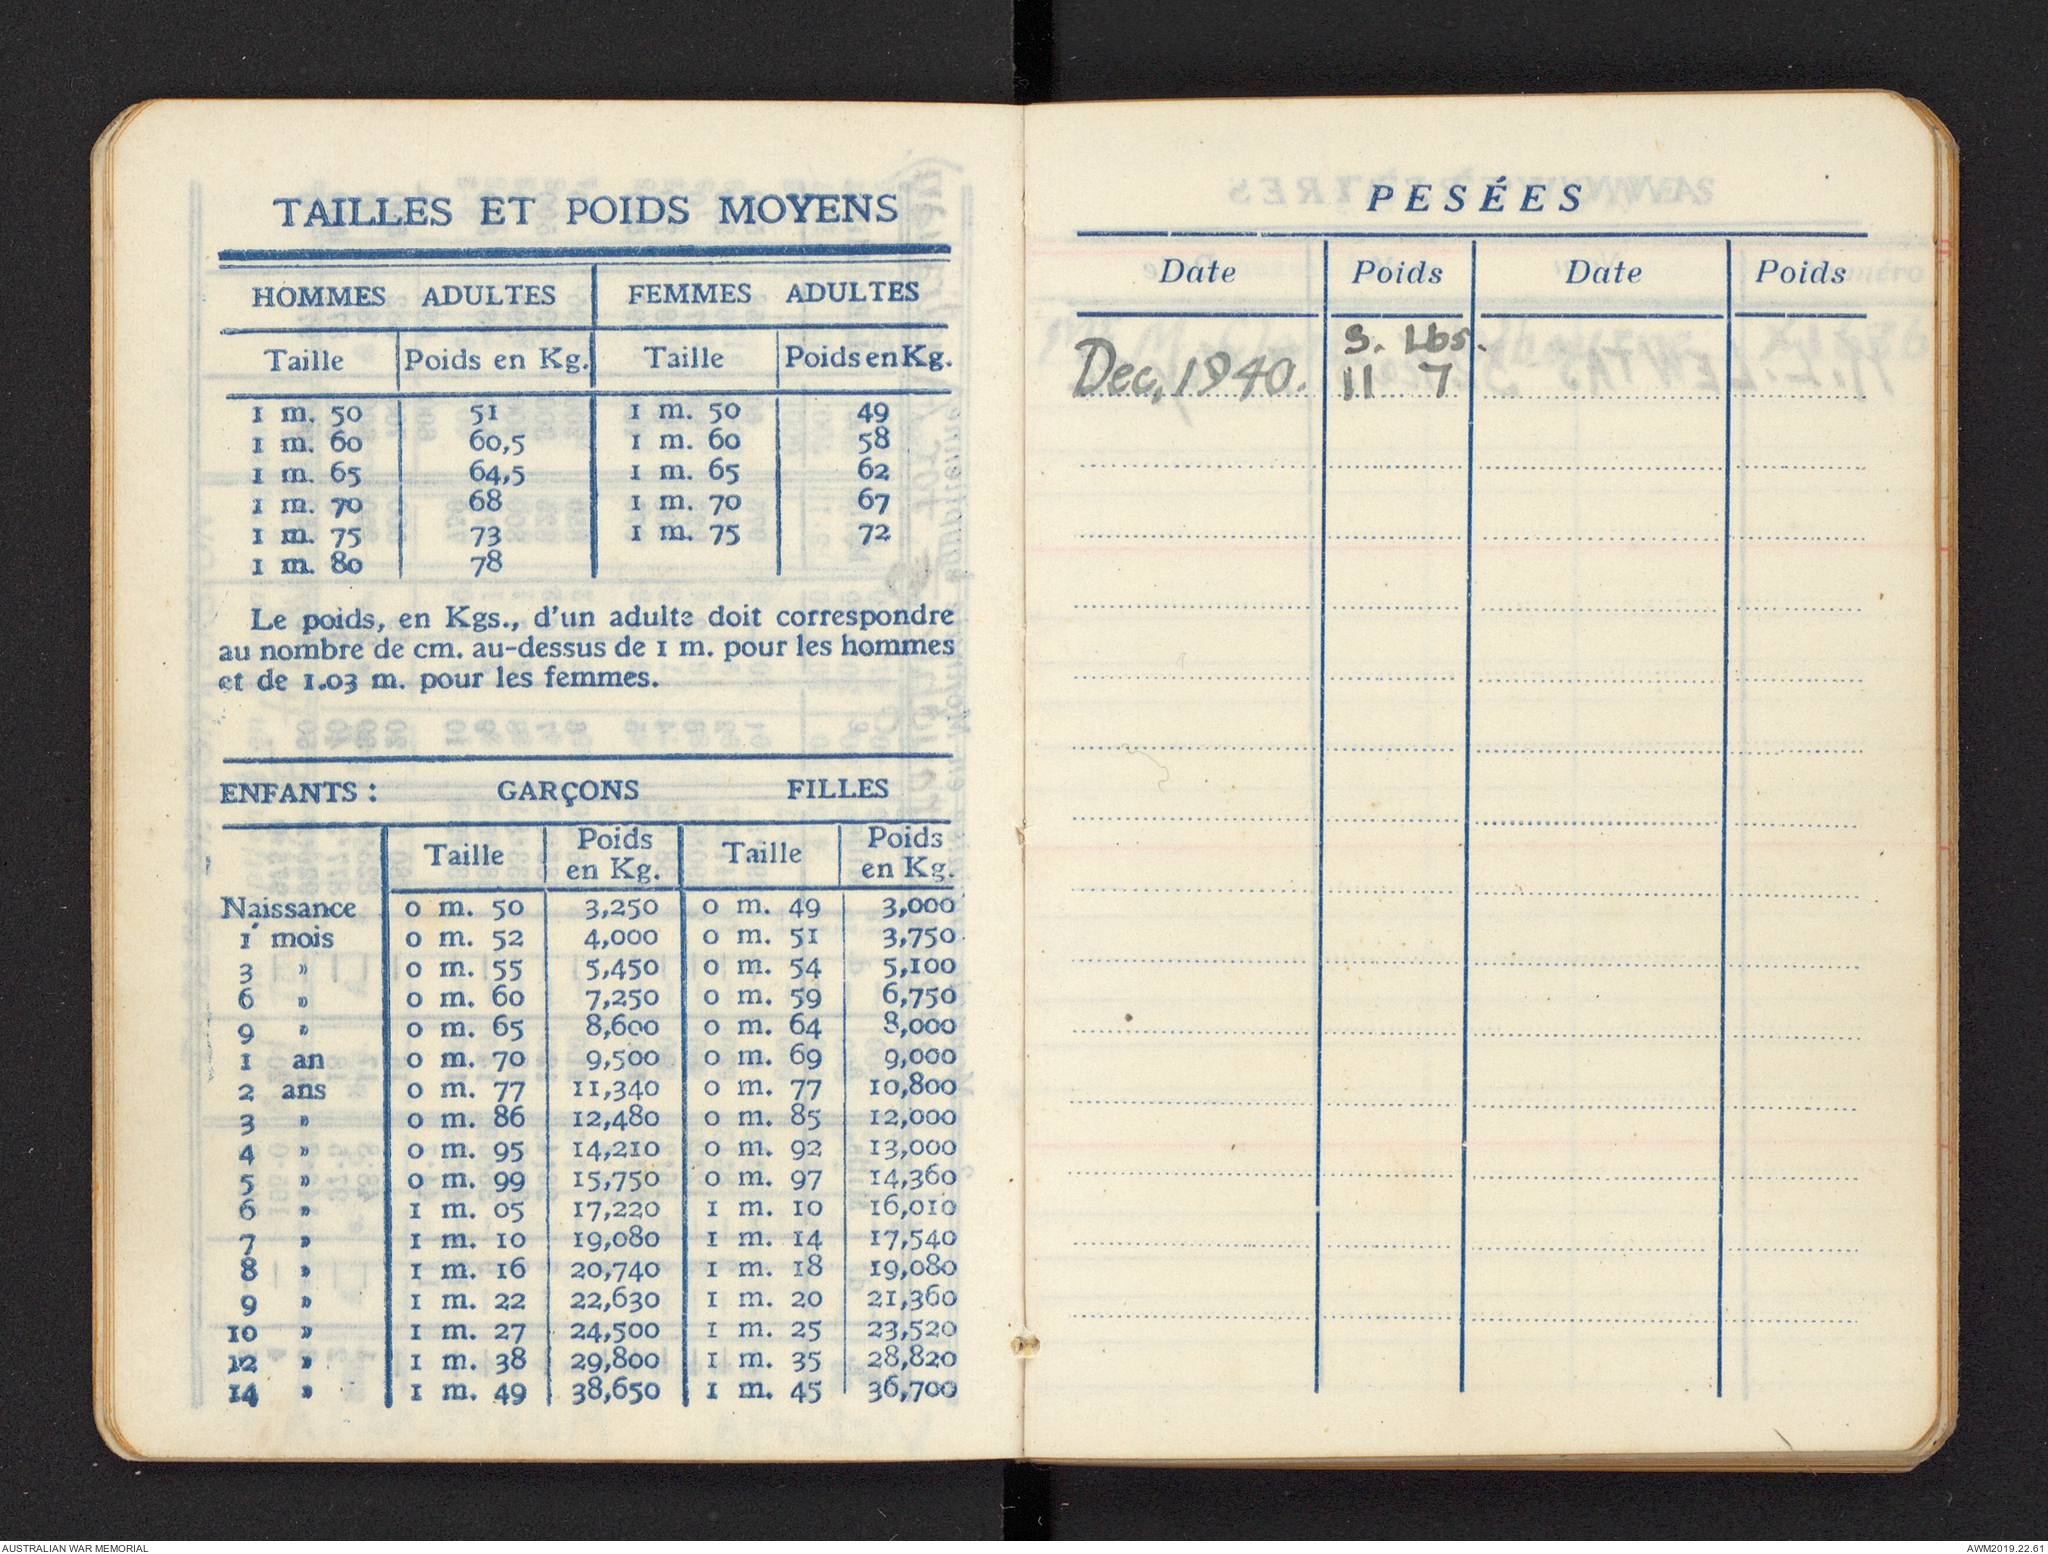 TAILLES ET POIDS MOYENS
HOMMES ADULTES FEMMES ADULTES
Taille Poids en Kg. Taille Poids en Kg.
1 m. 50 51 1 m. 50 49
1 m. 60 60,5 1 m. 60 58
1 m. 65 64,5 1 m. 65 62
1 m. 70 68 1 m. 70 67
1 m. 75 73 1 m. 75 72
1 m. 80 78
Le poids, en Kgs., d'un adulte doit correspondre
au nombre de cm. au-dessus de 1 m. pour les hommes
et de 1.03 m. pour les femmes.
ENFANTS : GARÇONS FILLES
Taille Poids en Kg. Taille Poids en Kg.
Naissance 0 m. 50 3,250 0 m. 49 3,000
1 mois 0 m. 52 4,000 0 m. 51 3,750
3 » 0 m. 55 5,450 0 m. 54 5,100
6 » 0 m. 60 7,250 0 m. 59 6,750
9 » 0 m. 65 8,600 0 m. 64 8,000
1 an 0 m. 70 9,500 0 m. 69 9,000
2 ans 0 m. 77 11,340 0 m. 77 10,800
3 » 0 m. 86 12,480 0 m. 85 12,000
4 » 0 m. 95 14,210 0 m. 92 13,000
5 » 0 m. 99 15,750 0 m. 97 14,360
6 » 1 m. 05 17,220 1 m. 10 16,010
7 » 1 m. 10 19,080 1 m. 14 17,540
8 » 1 m. 16 20,740 1 m. 18 19,080
9 » 1 m. 22 22,630 1 m. 20 21,360
10 » 1 m. 27 24,500 1 m. 25 23,520
12 » 1 m. 38 29,800 1 m. 35 28,820
14 » 1 m. 49 38,650 1 m. 45 36,700
PESÉES
Date Poids Date Poids
S. Lbs.
Dec, 1940. 11 7
AUSTRALIAN WAR MEMORIAL
AWM2019.22.61